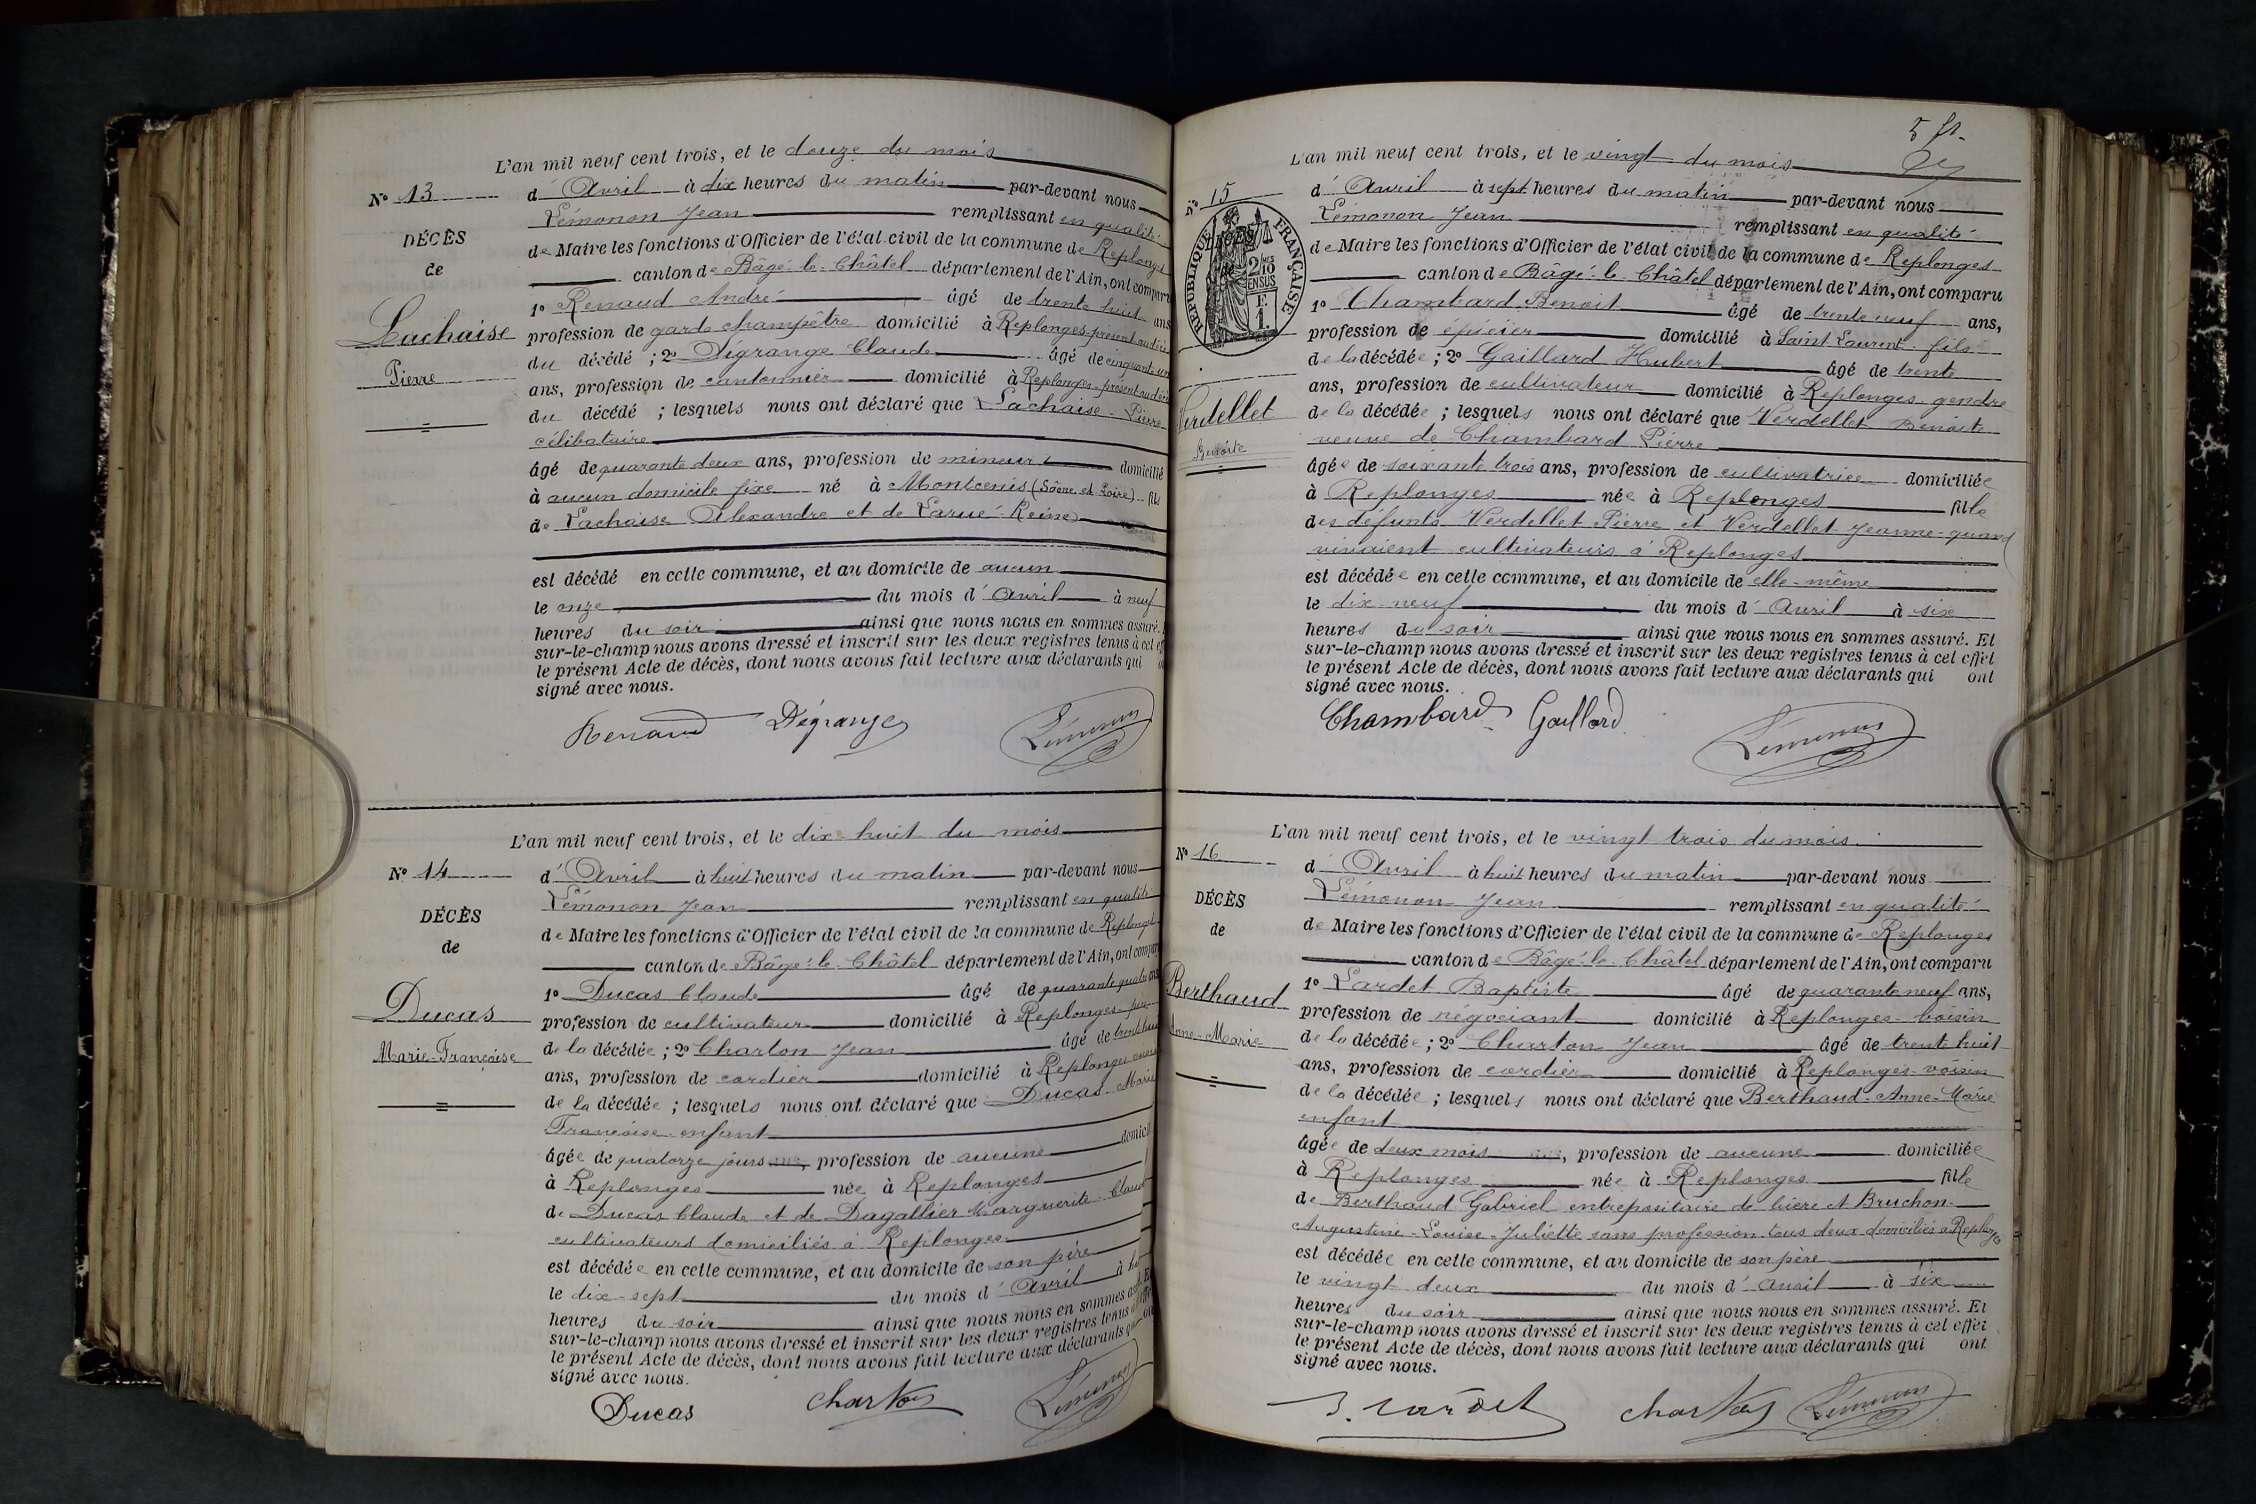 L'an mil neuf cent trois, et le douze du mois
N° 13
d' Avril à dix heures du matin par-devant nous
Lémonon Jean remplissant en qualité
DÉCÈS
de Maire les fonctions d'Officier de l'état civil de la commune de Replonges
de
canton de Bâgé-le-Châtel département de l'Ain, ont comparu
1° Renaud André âgé de trente huit ans
Lachaise
profession de garde champêtre domicilié à Replonges présent au décès
du décédé ; 2° Dégrange Claude âgé de cinquante un
Pierre
ans, profession de cantonnier domicilié à Replonges présent au décès
du décédé ; lesquels nous ont déclaré que Lachaise Pierre
célibataire
âgé de quarante deux ans, profession de mineur domicilié
à aucun domicile fixe né à Montcenis (Saône et Loire) fils
de Lachaise Alexandre et de Larue Reine
est décédé en cette commune, et au domicile de aucun
le onze du mois d' Avril à neuf
heures du soir ainsi que nous nous en sommes assuré.
sur-le-champ nous avons dressé et inscrit sur les deux registres tenus à cet
le présent Acte de décès, dont nous avons fait lecture aux déclarants qui
signé avec nous.
Renaud Dégrange Lémonon
L'an mil neuf cent trois, et le dix-huit du mois
N° 14
d' Avril à huit heures du matin par-devant nous
Lémonon Jean remplissant en qualité
DÉCÈS
de Maire les fonctions d'Officier de l'état civil de la commune de Replonges
de
canton de Bâgé-le-Châtel département de l'Ain, ont comparu
1° Ducas Claude âgé de quarante quatre ans
Ducas
profession de cultivateur domicilié à Replonges père
Marie-Françoise
de la décédée ; 2° Charton Jean âgé de trente huit
ans, profession de cordier domicilié à Replonges
de la décédée ; lesquels nous ont déclaré que Ducas Marie
Françoise enfant
âgée de quatorze jours ans, profession de aucune domicil
à Replonges née à Replonges
de Ducas Claude et de Dagallier Marguerite Claud
cultivateurs domiciliés à Replonges
est décédée en cette commune, et au domicile de son père
le dix-sept du mois d' Avril à
heures du soir ainsi que nous nous en sommes assuré. Et
sur-le-champ nous avons dressé et inscrit sur les deux registres tenus à cet effet
le présent Acte de décès, dont nous avons fait lecture aux déclarants qui ont
signé avec nous.
Ducas Charton Lémonon
5 ft.
L'an mil neuf cent trois, et le vingt du mois
N° 15
d' Avril à sept heures du matin par-devant nous
Lémonon Jean remplissant en qualité
RÉPUBLIQUE FRANÇAISE
DÉCÈS
de
2/10 EN SUS
1 F.
de Maire les fonctions d'Officier de l'état civil de la commune de Replonges
canton de Bâgé-le-Châtel département de l'Ain, ont comparu
1° Chambard Benoit âgé de trente neuf ans,
profession de épicier domicilié à Saint Laurent fils
de la décédée ; 2° Gaillard Hubert âgé de trente
ans, profession de cultivateur domicilié à Replonges gendre
Verdellet
de la décédée ; lesquels nous ont déclaré que Verdellet Benoite
Benoite
veuve de Chambard Pierre
âgée de soixante trois ans, profession de cultivatrice domiciliée
à Replonges née à Replonges fille
des défunts Verdellet Pierre et Verdellet Jeanne quand
vivaient cultivateurs à Replonges
est décédée en cette commune, et au domicile de elle-même
le dix-neuf du mois d' Avril à six
heures du soir ainsi que nous nous en sommes assuré. Et
sur-le-champ nous avons dressé et inscrit sur les deux registres tenus à cet effet
le présent Acte de décès, dont nous avons fait lecture aux déclarants qui ont
signé avec nous.
Chambard Gaillard Lémonon
L'an mil neuf cent trois, et le vingt trois du mois
N° 16
d' Avril à huit heures du matin par-devant nous
Lémonon Jean remplissant en qualité
DÉCÈS
de Maire les fonctions d'Officier de l'état civil de la commune de Replonges
de
canton de Bâgé-le-Châtel département de l'Ain, ont comparu
Berthaud
1° Lardet Baptiste âgé de quarante neuf ans,
profession de négociant domicilié à Replonges voisin
Anne-Marie
de la décédée ; 2° Charton Jean âgé de trente huit
ans, profession de cordier domicilié à Replonges voisin
de la décédée ; lesquels nous ont déclaré que Berthaud Anne-Marie
enfant
âgée de deux mois ans, profession de aucune domiciliée
à Replonges née à Replonges fille
de Berthaud Gabriel entrepositaire de bière et Bruchon
Augustine-Louise-Juliette sans profession tous deux domiciliés à Replonges
est décédée en cette commune, et au domicile de son père
le vingt deux du mois d' avril à six
heures du soir ainsi que nous nous en sommes assuré. Et
sur-le-champ nous avons dressé et inscrit sur les deux registres tenus à cet effet
le présent Acte de décès, dont nous avons fait lecture aux déclarants qui ont
signé avec nous.
B. Lardet Charton Lémonon